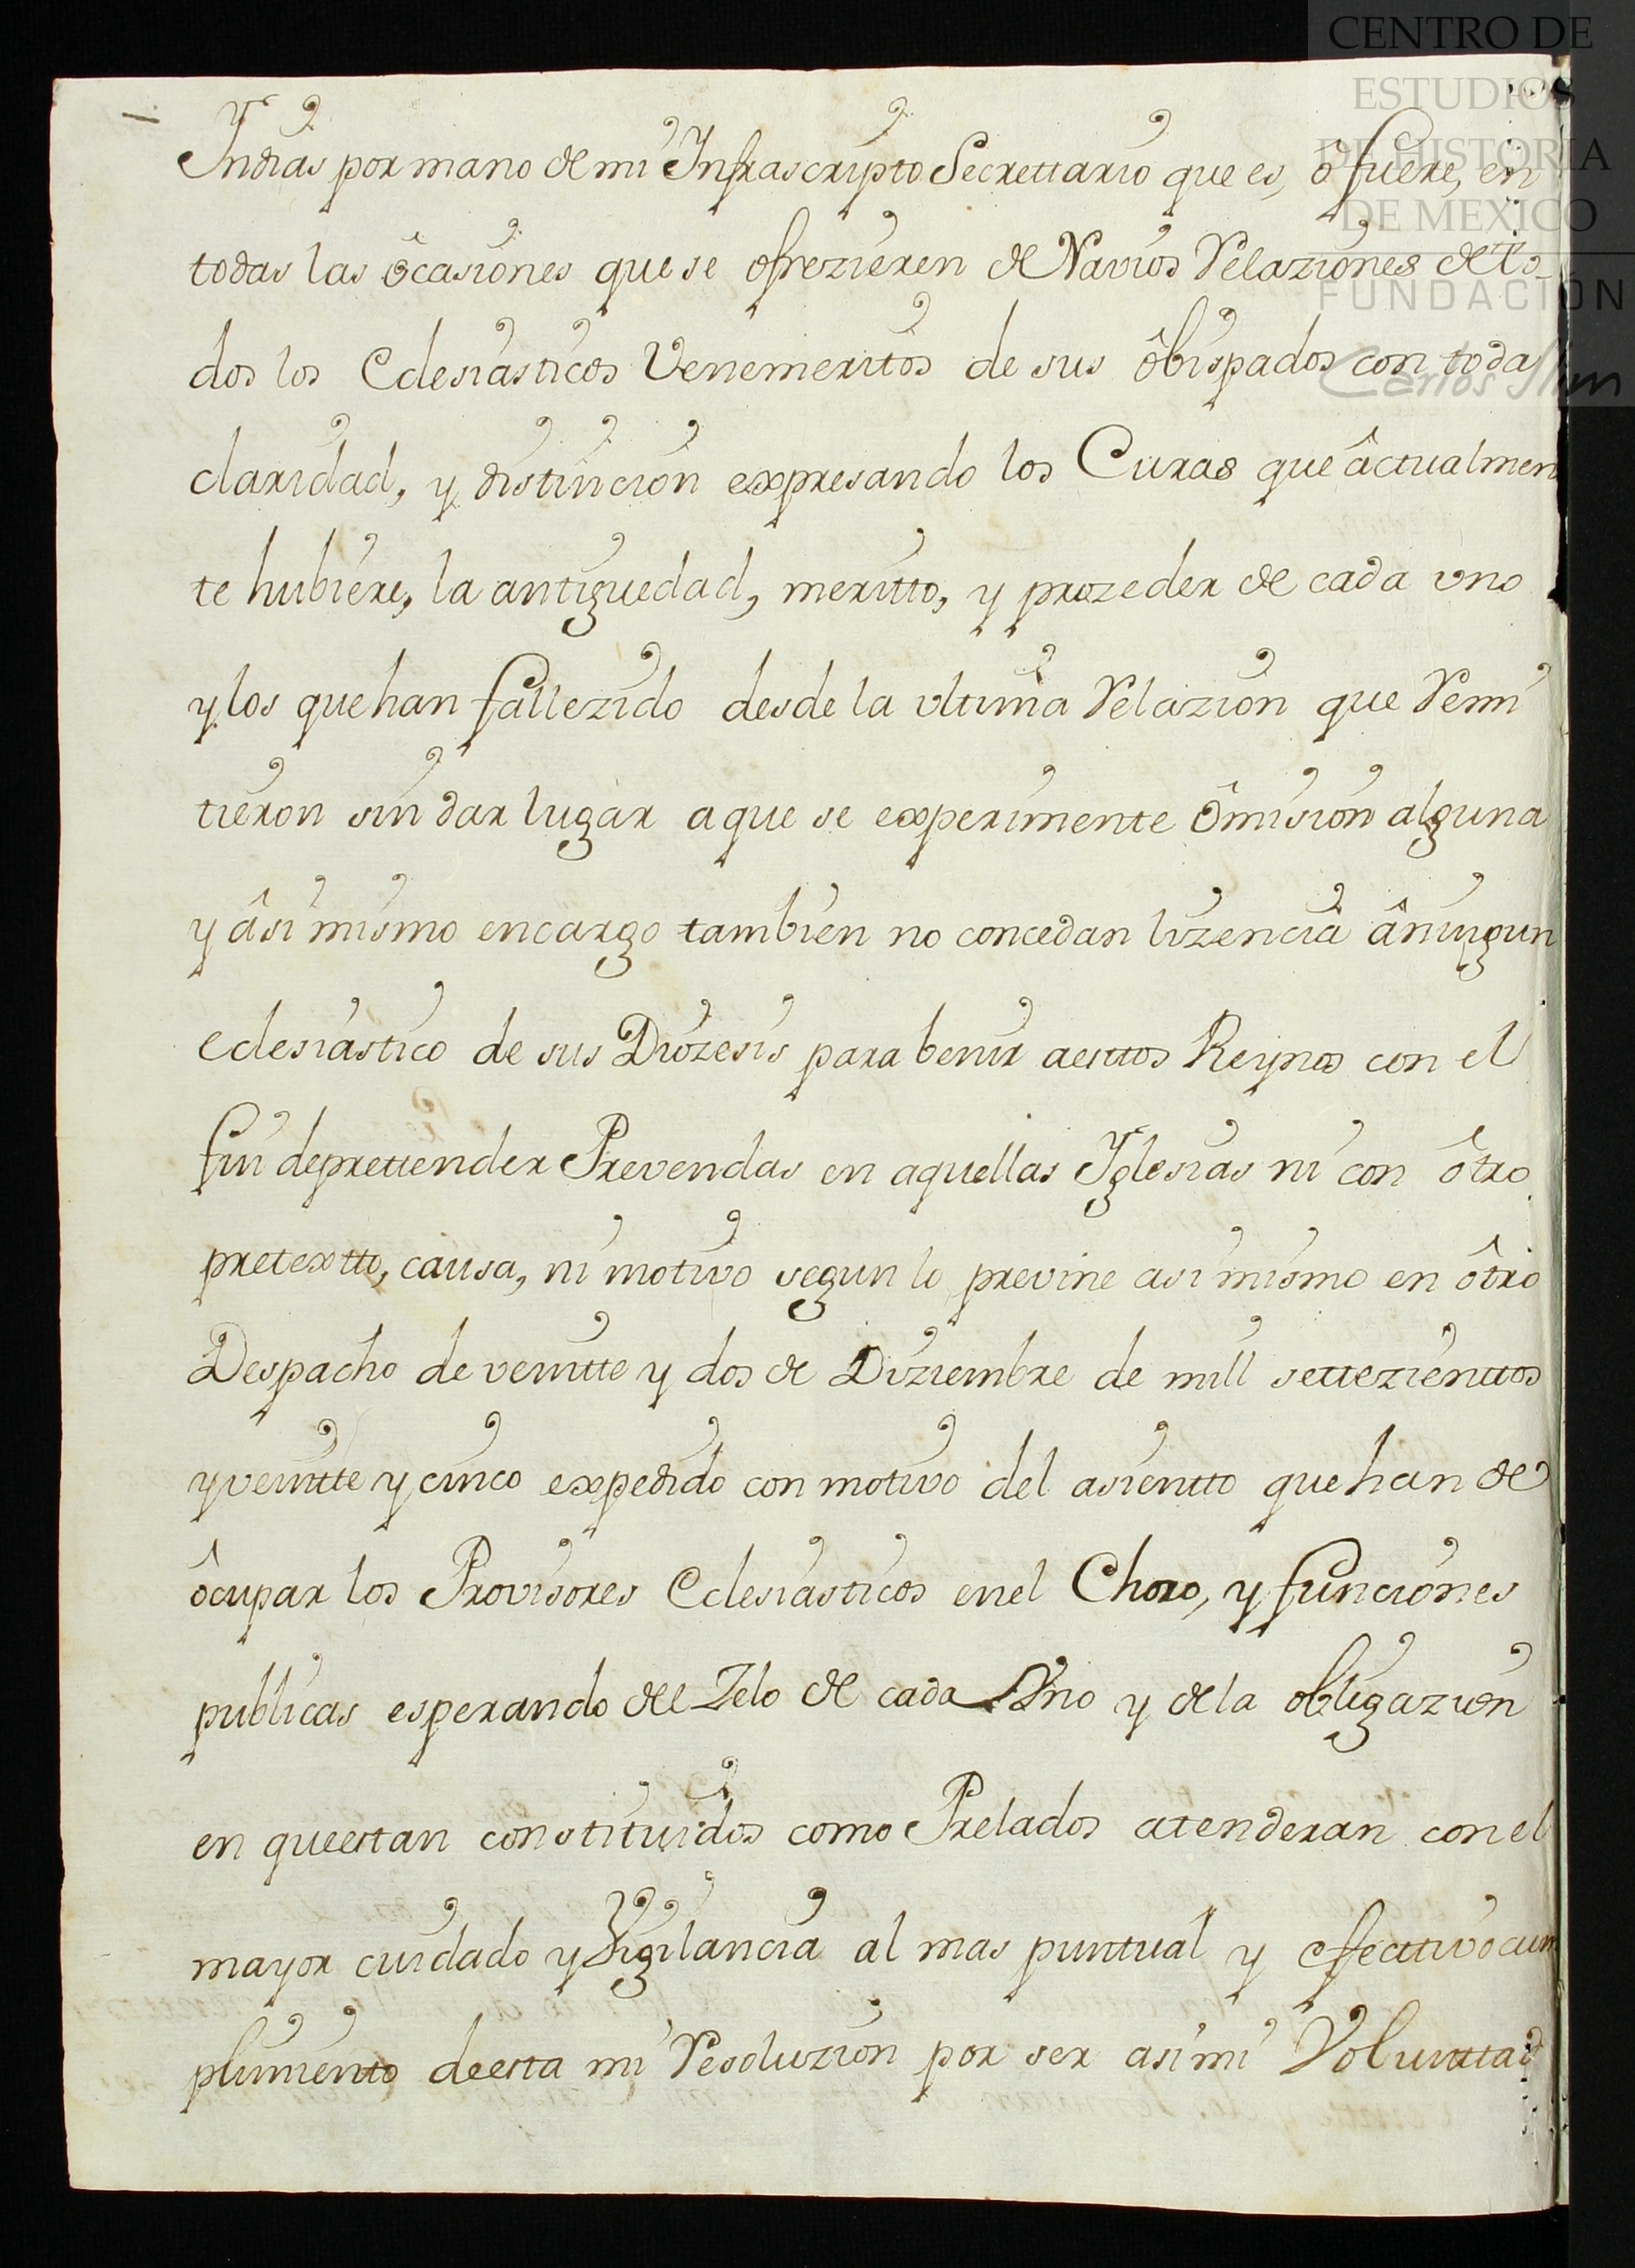 CENTRO DE
ESTUDIOS
DE HISTORIA
DE MEXICO
FUNDACIÓN
Carlos Slim
Yndias por mano de mi Ynfrascripto Secrettario que es, ô fuere, en
todas las ôcasiones que se ofrezieren de Navios Relaziones de to-
dos los Eclesiasticos Venemeritos de sus ôbispados con toda
claridad, y distincion expresando los Curas que âctualmen
te hubiere, la antiguedad, meritto, y prozeder de cada vno
y los que han fallezido desde la vltima Relazion que Remi
tieron sin dar lugar a que se experimente ômision alguna
y âsi mismo encargo tambien no concedan lizencia â ningun
eclesiastico de sus Diozesis para benir a esttos Reynos con el
fin de prettender Prevendas en aquellas Yglesias ni con ôtro
pretextto, causa, ni motivo segun lo previne asi mismo en ôtro
Despacho de veintte y dos de Diziembre de mill settezienttos
y veintte y cinco expedido con motivo del asientto que han de
ôcupar los Provisores Eclesiasticos en el Choro, y funciones
publicas esperando del Zelo de cada Vno y de la obligazion
en que estan constituidos como Prelados atenderan con el
mayor cuidado y Vigilancia al mas puntual y efecttivo cum
plimiento de esta mi Resoluzion por ser asi mi Volunttad